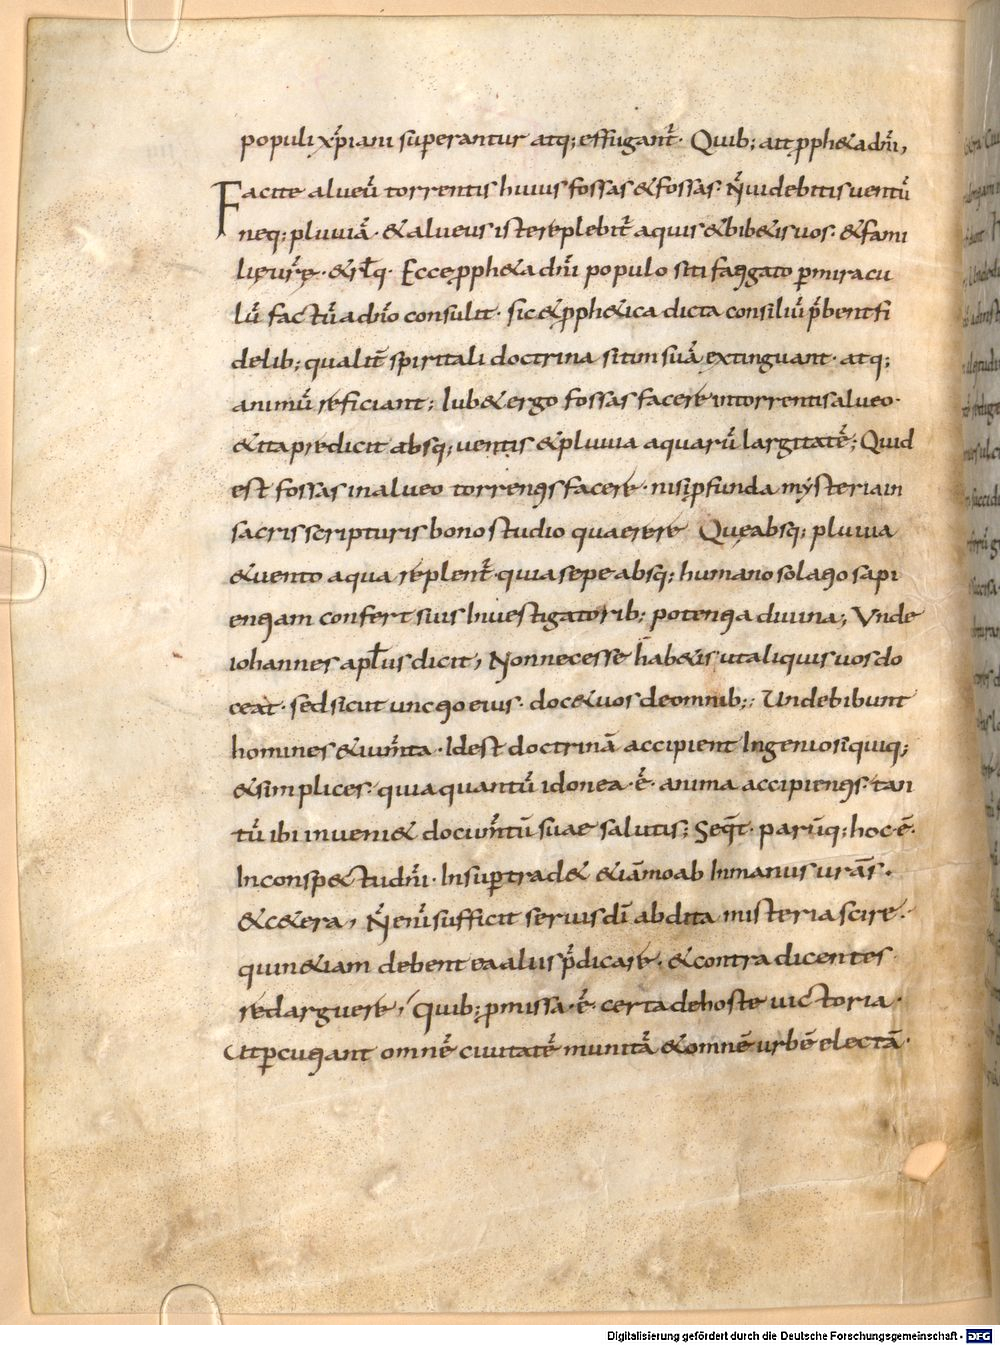 populi xp̄iani superantur atq; effugant̄. Quib; ait ꝓpheta dn̄i,
Facite alueū torrentis huius fossas & fossas. N̄ uidebitis uentū
neq; pluuiā. & alueus iste replebit̄ aquis & bibetis uos. & fami
lię ur̄ę. & rl̄q. Ecce ꝓpheta dn̄i populo siti fatigato ꝑ miracu
lū factū a dn̄o consulit. sic & ꝓphetica dicta consiliū p̄bent fi
delib; qualit̄ spiritali doctrina sitim suā extinguant. atq;
animū reficiant; Iubet ergo fossas facere in torrentis alueo.
& ita predicit absq; uentis & pluuia aquarū largitatē; Quid
est fossas in alueo torrentis facere. nisi ꝓfunda mysteria in
sacris scripturis bono studio quaerere Quę absq; pluuia
& uento aqua replent̄. quia sepe absq; humano solatio sapi
entiam confert suis Inuestigatorib; potentia diuina; Vnde
iohannes apl̄us dicit, Non necesse habetis ut aliquis uos do
ceat. sed sicut unctio eius. docet uos de omnib;; Unde bibunt
homines & ium̄ta. Idest doctrinā accipient Ingeniosi quiq;
& simplices. quia quantū idonea .ē. anima accipientis. tan
tū ibi inueniet docum̄tū suae salutis; Seq̄t. parūq; hoc .ē.
In conspectu dn̄i. Insuꝑ tradet etiā moab In manus urās.
& cetera, N̄ enī sufficit seruis dī abdita misteria scire.
quin etiam debent ea aliis p̄dicare. & contradicentes
redarguere, Quib; ꝓmissa .ē. certa de hoste uictoria.
Ut ꝑcutiant omnē ciuitatē munitā & omnē urbē electā.
Digitalisierung gefördert durch die Deutsche Forschungsgemeinschaft - DFG